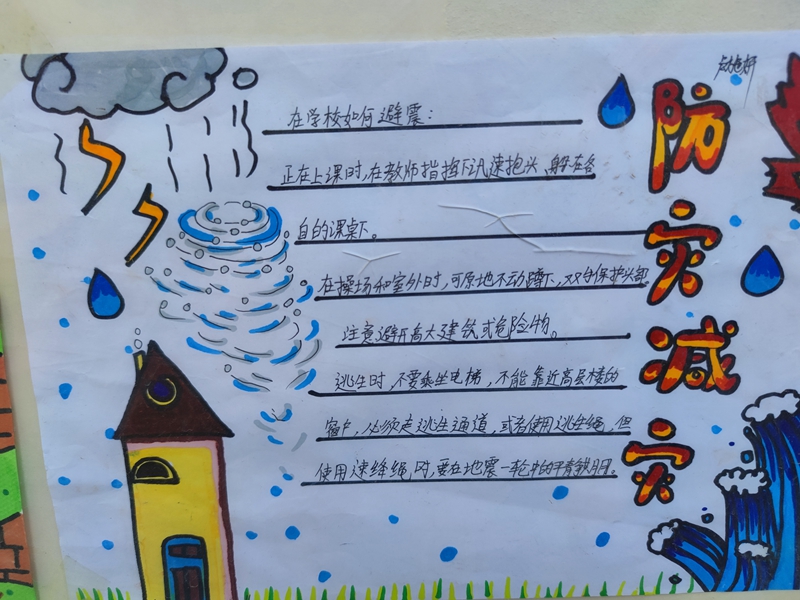 在学校如何避震:
正在上课时,在教师指挥下迅速抱头、躲在各
自的课桌下。
在操场和室外时,可原地不动蹲下,双手保护头部
注意避开高大建筑或危险物。
逃生时,不要乘坐电梯,不能靠近高层楼的
窗户,必须走逃生通道,或者使用逃生绳,但
使用速绛绳时,要在地震一轮
防灾减灾